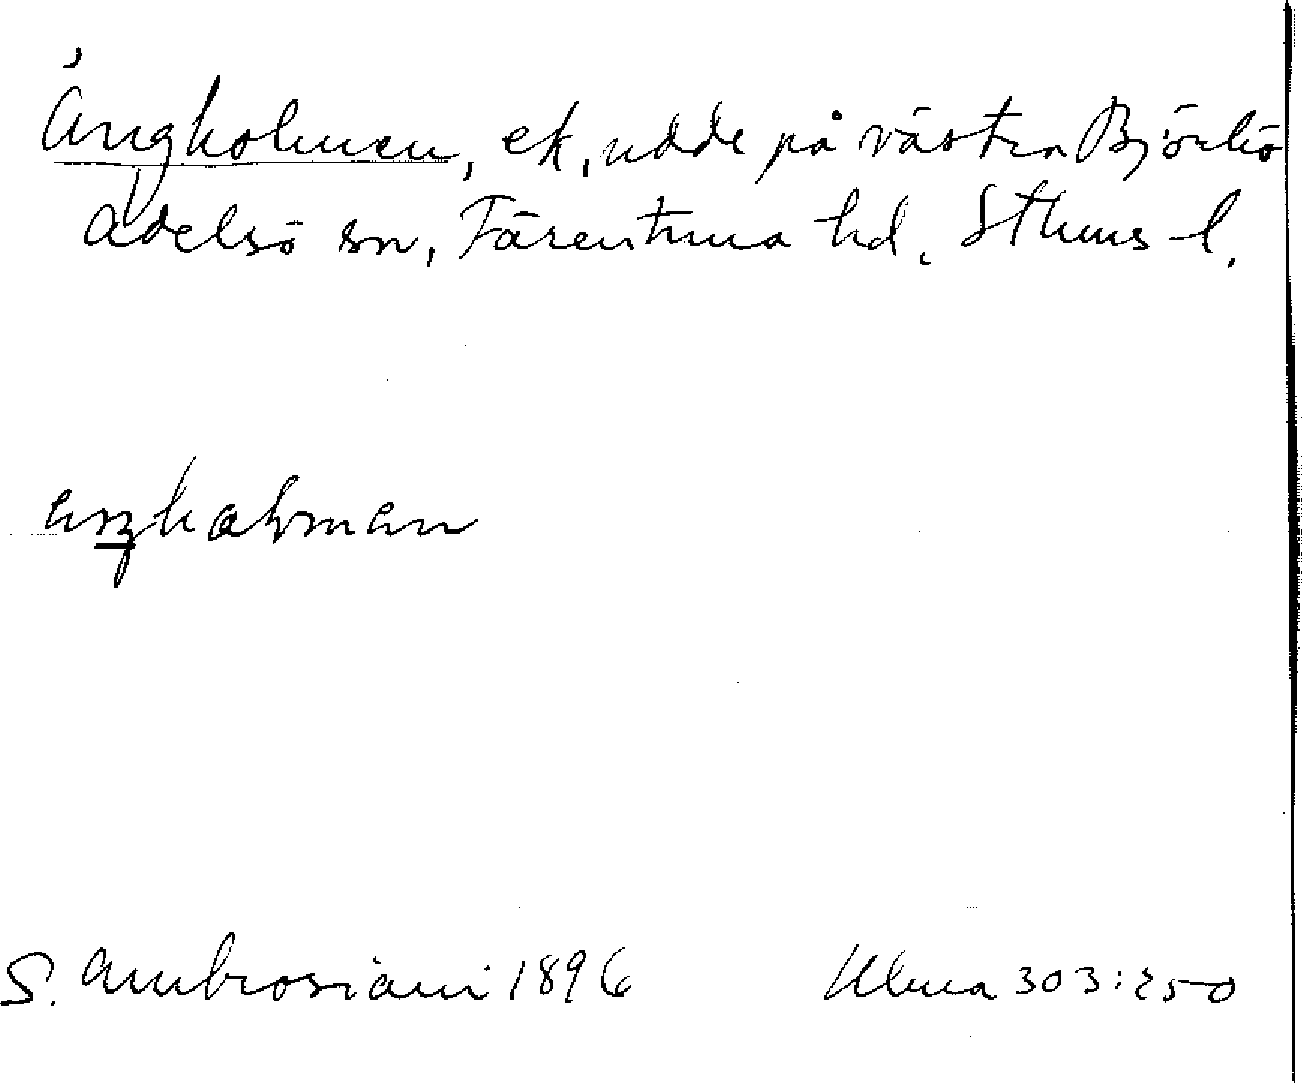 Ängholmen, ek, udde på västra Björkö
Adelsö sn, Färentuna hd, Sthms l.
S. Ambrosiani 1896 Ulma 303:250